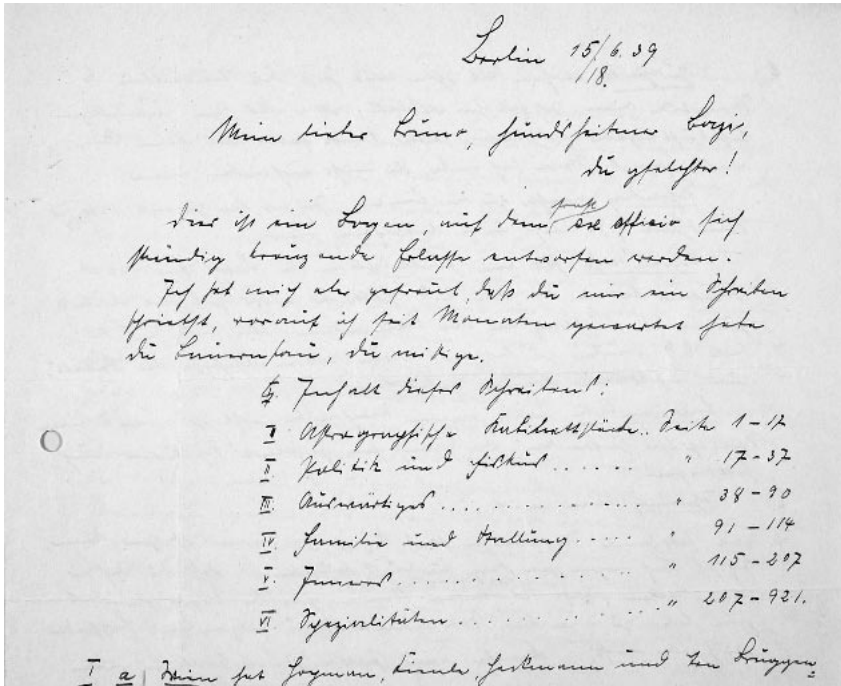 Berlin 15/6.39
18.
Mein lieber Bruno, hundsheitner Bazi,
du gselchter!
Dies ist ein Bogen, auf dem sonst ex officio sich
ständig kreuzende Erlasse entworfen werden.
Ich hat mich aber gefreut, daß du mir ein Schreiben
schriebst, worauf ich seit Monaten gewartet habe
du Bauernsau, du mistige.
Inhalt dieses Schreibens:
I. Astrographische Kabinettstücke.. Seite 1-17
II. Politik und Fiskus...... " 17-37
III. Auswärtiges............... " 38-90
IV. Familie und Stallung..... " 91-114
V. Inneres............... " 115-207
VI. Spezialitäten............ " 207-921.
I a) Wien hat Hopman, Kienle, Heckmann und ten Bruggen=